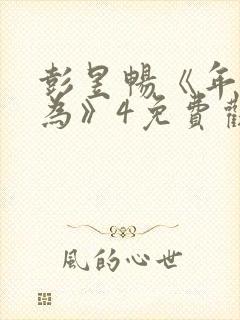 彭昱暢《年
為》4免費觀
風的心世